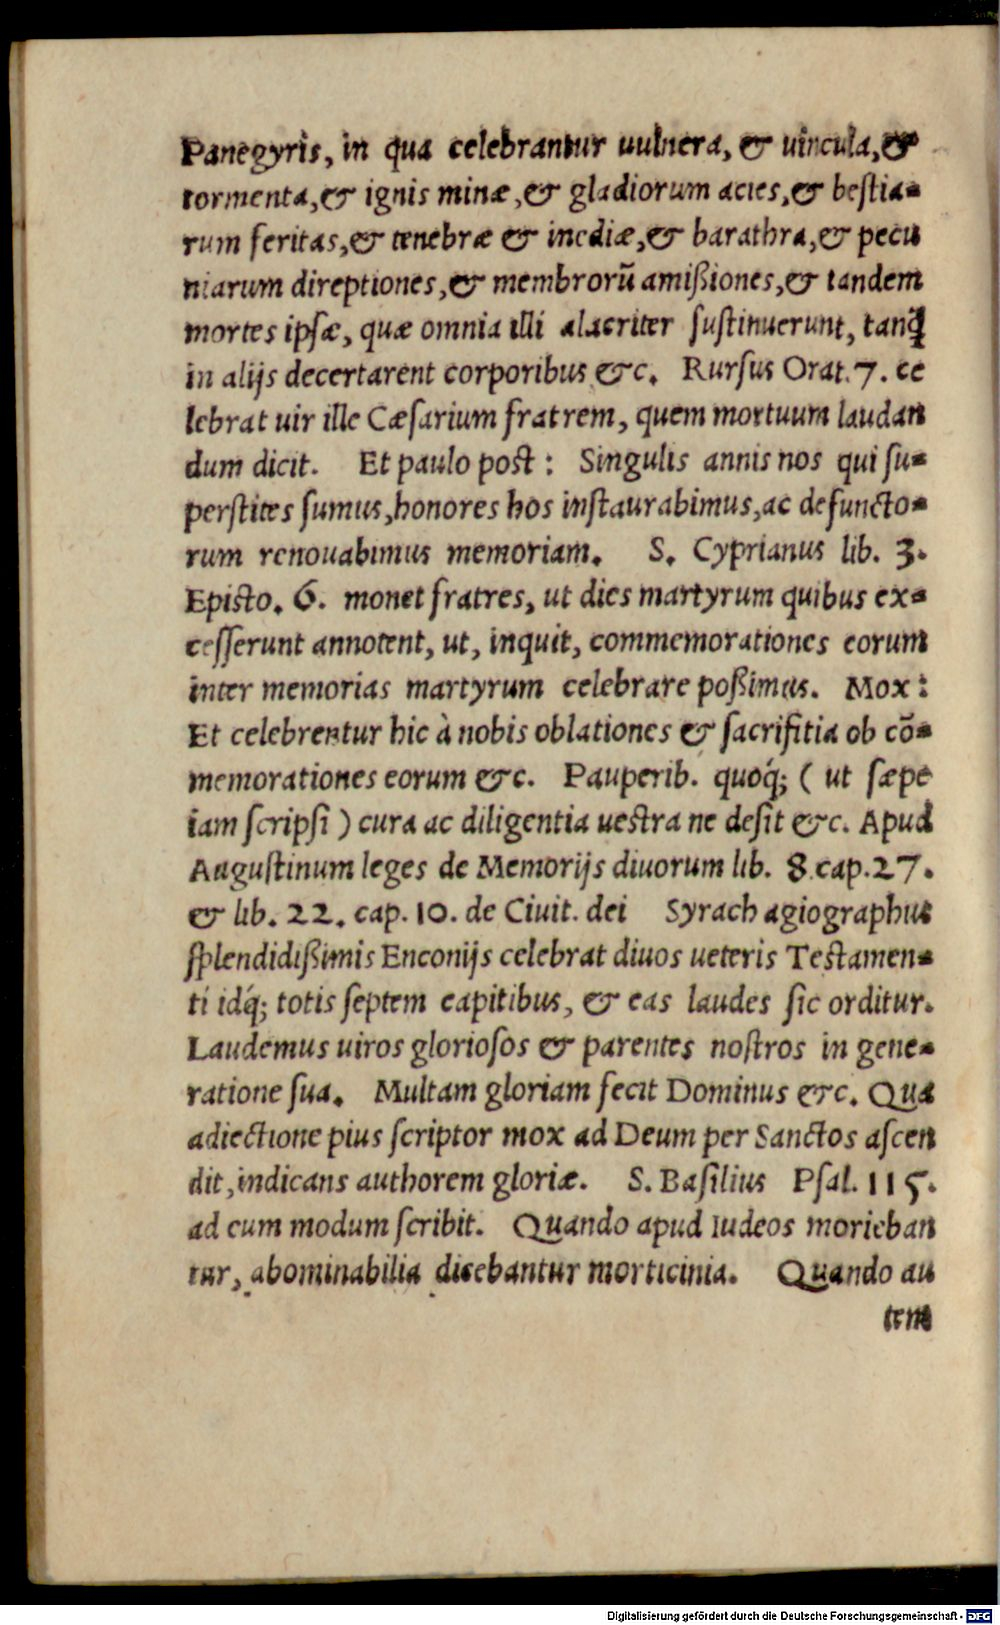 Panegyris, in qua celebrantur uulnera, & uincula, &
tormenta, & ignis minæ, & gladiorum acies, & bestia-
rum feritas, & tenebræ & inediæ, & barathra, & pecu
niarum direptiones, & membrorũ amißiones, & tandem
mortes ipsæ, quæ omnia illi alacriter sustinuerunt, tanq̃
in alijs decertarent corporibus &c. Rursus Orat. 7. ce
lebrat uir ille Cæsarium fratrem, quem mortuum laudan
dum dicit. Et paulo post: Singulis annis nos qui su-
perstites sumus, honores hos instaurabimus, ac defuncto-
rum renouabimus memoriam. S. Cyprianus lib. 3.
Episto. 6. monet fratres, ut dies martyrum quibus ex-
cesserunt annotent, ut, inquit, commemorationes eorum
inter memorias martyrum celebrare poßimus. Mox:
Et celebrentur hic à nobis oblationes & sacrifitia ob cõ-
memorationes eorum &c. Pauperib. quoq́; ( ut sæpe
iam scripsi ) cura ac diligentia uestra ne desit &c. Apud
Augustinum leges de Memorijs diuorum lib. 8 cap. 27.
& lib. 22. cap. 10. de Ciuit. dei Syrach agiographus
splendidißimis Enconijs celebrat diuos ueteris Testamen-
ti idq́; totis septem capitibus, & eas laudes sic orditur.
Laudemus uiros gloriosos & parentes nostros in gene-
ratione sua. Multam gloriam fecit Dominus &c. Qua
adiectione pius scriptor mox ad Deum per Sanctos ascen
dit, indicans authorem gloriæ. S. Basilius Psal. 115.
ad eum modum scribit. Quando apud Iudeos morieban
tur, abominabilia dicebantur morticinia. Quando au
tem
Digitalisierung gefördert durch die Deutsche Forschungsgemeinschaft - DFG